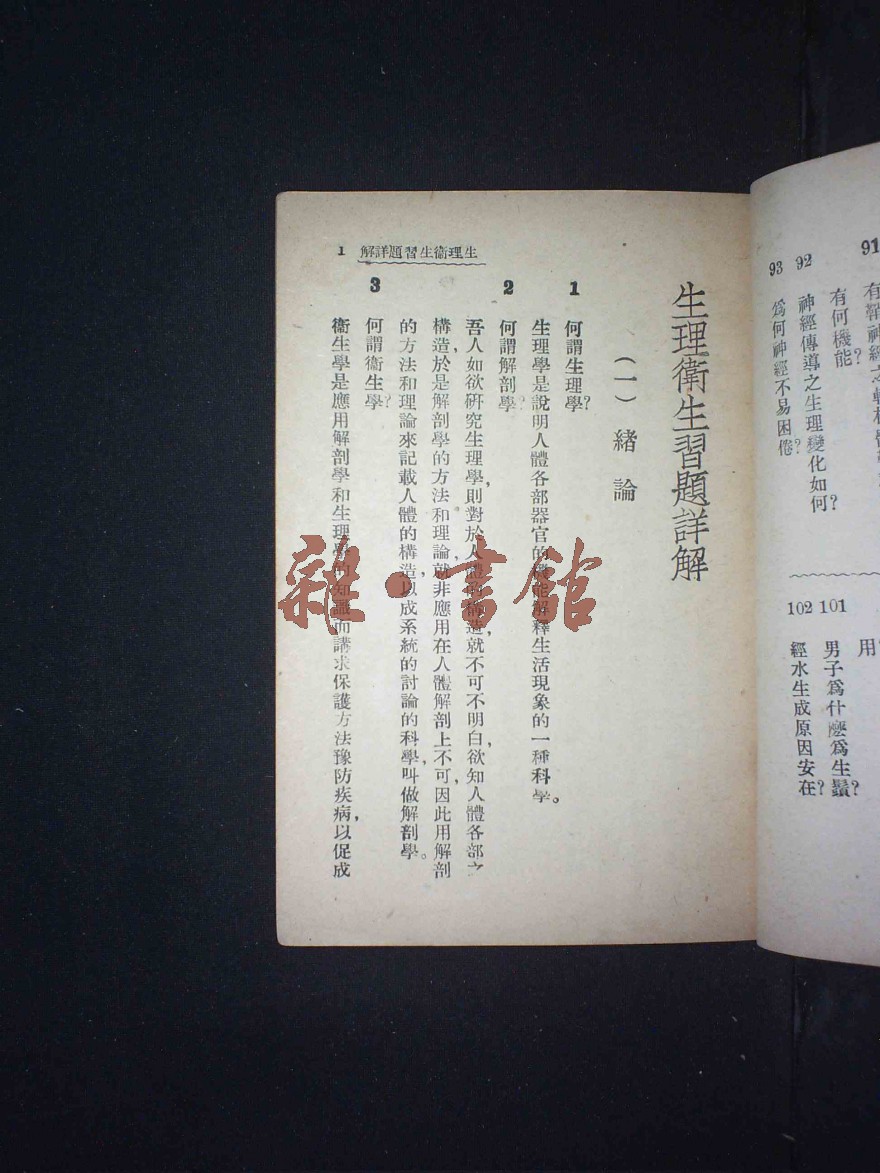 91
有何機能?
92
神經傳導之生理變化如何?
93
爲何神經不易困倦?
用?
101
男子爲什麽爲生鬚?
102
經水生成原因安在?
生理衛生習題詳解
(一) 緒論
1
何謂生理學?
生理學是說明人體各部器官的機能解釋生活現象的一種科學。
2
何謂解剖學?
吾人如欲研究生理學,則對於人體的構造就不可不明白,欲知人體各部之
構造,於是解剖學的方法和理論,就非應用在人體解剖上不可,因此用解剖
的方法和理論來記載人體的構造,以成系統的討論的科學,叫做解剖學。
3
何謂衛生學?
衛生學是應用解剖學和生理學的知識而講求保護方法豫防疾病,以促成
生理衛生習題詳解 1
雜·書館